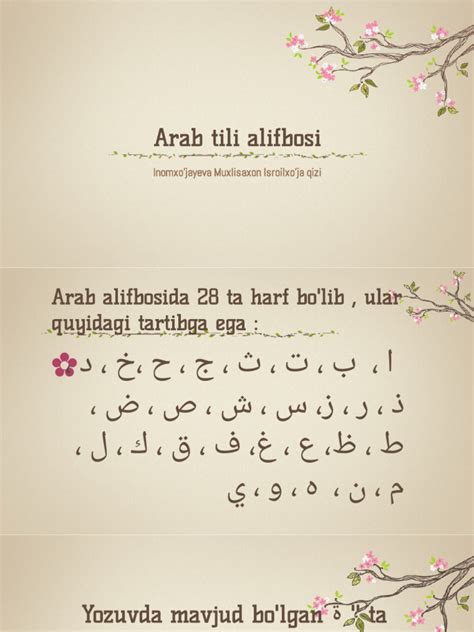 Arab tili alifbosi
Inomxo'jayeva Muxlisaxon Isroilxo'ja qizi
Arab alifbosida 28 ta harf bo'lib , ular
quyidagi tartibga ega :
ا، ب، ت، ث، ج، ح، خ، د
ذ، ر، ز، س، ش، ص، ض،
ط، ظ، ع، غ، ف، ق، ك، ل،
م، ن، ه، و، ي
Yozuvda mavjud bo'lgan ة